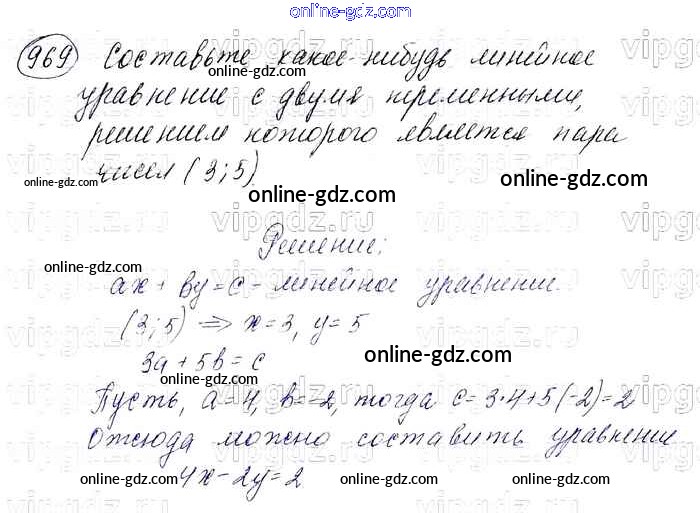 online-gdz.com
969 Составьте какое-нибудь линейное
online-gdz.com online-gdz.com
уравнение с двумя переменными,
решением которого является пара
чисел (3;5)
online-gdz.com online-gdz.com online-gdz.com
Решение:
online-gdz.com
ax + by = c - линейное уравнение
(3;5) => x=3, y=5
3a + 5b = c online-gdz.com
online-gdz.com
Пусть, a=4, b=-2, тогда c=3·4+5(-2)=2
Отсюда можно составить уравнение
4x-2y=2
online-gdz.com online-gdz.com online-gdz.com
vipgdz.ru